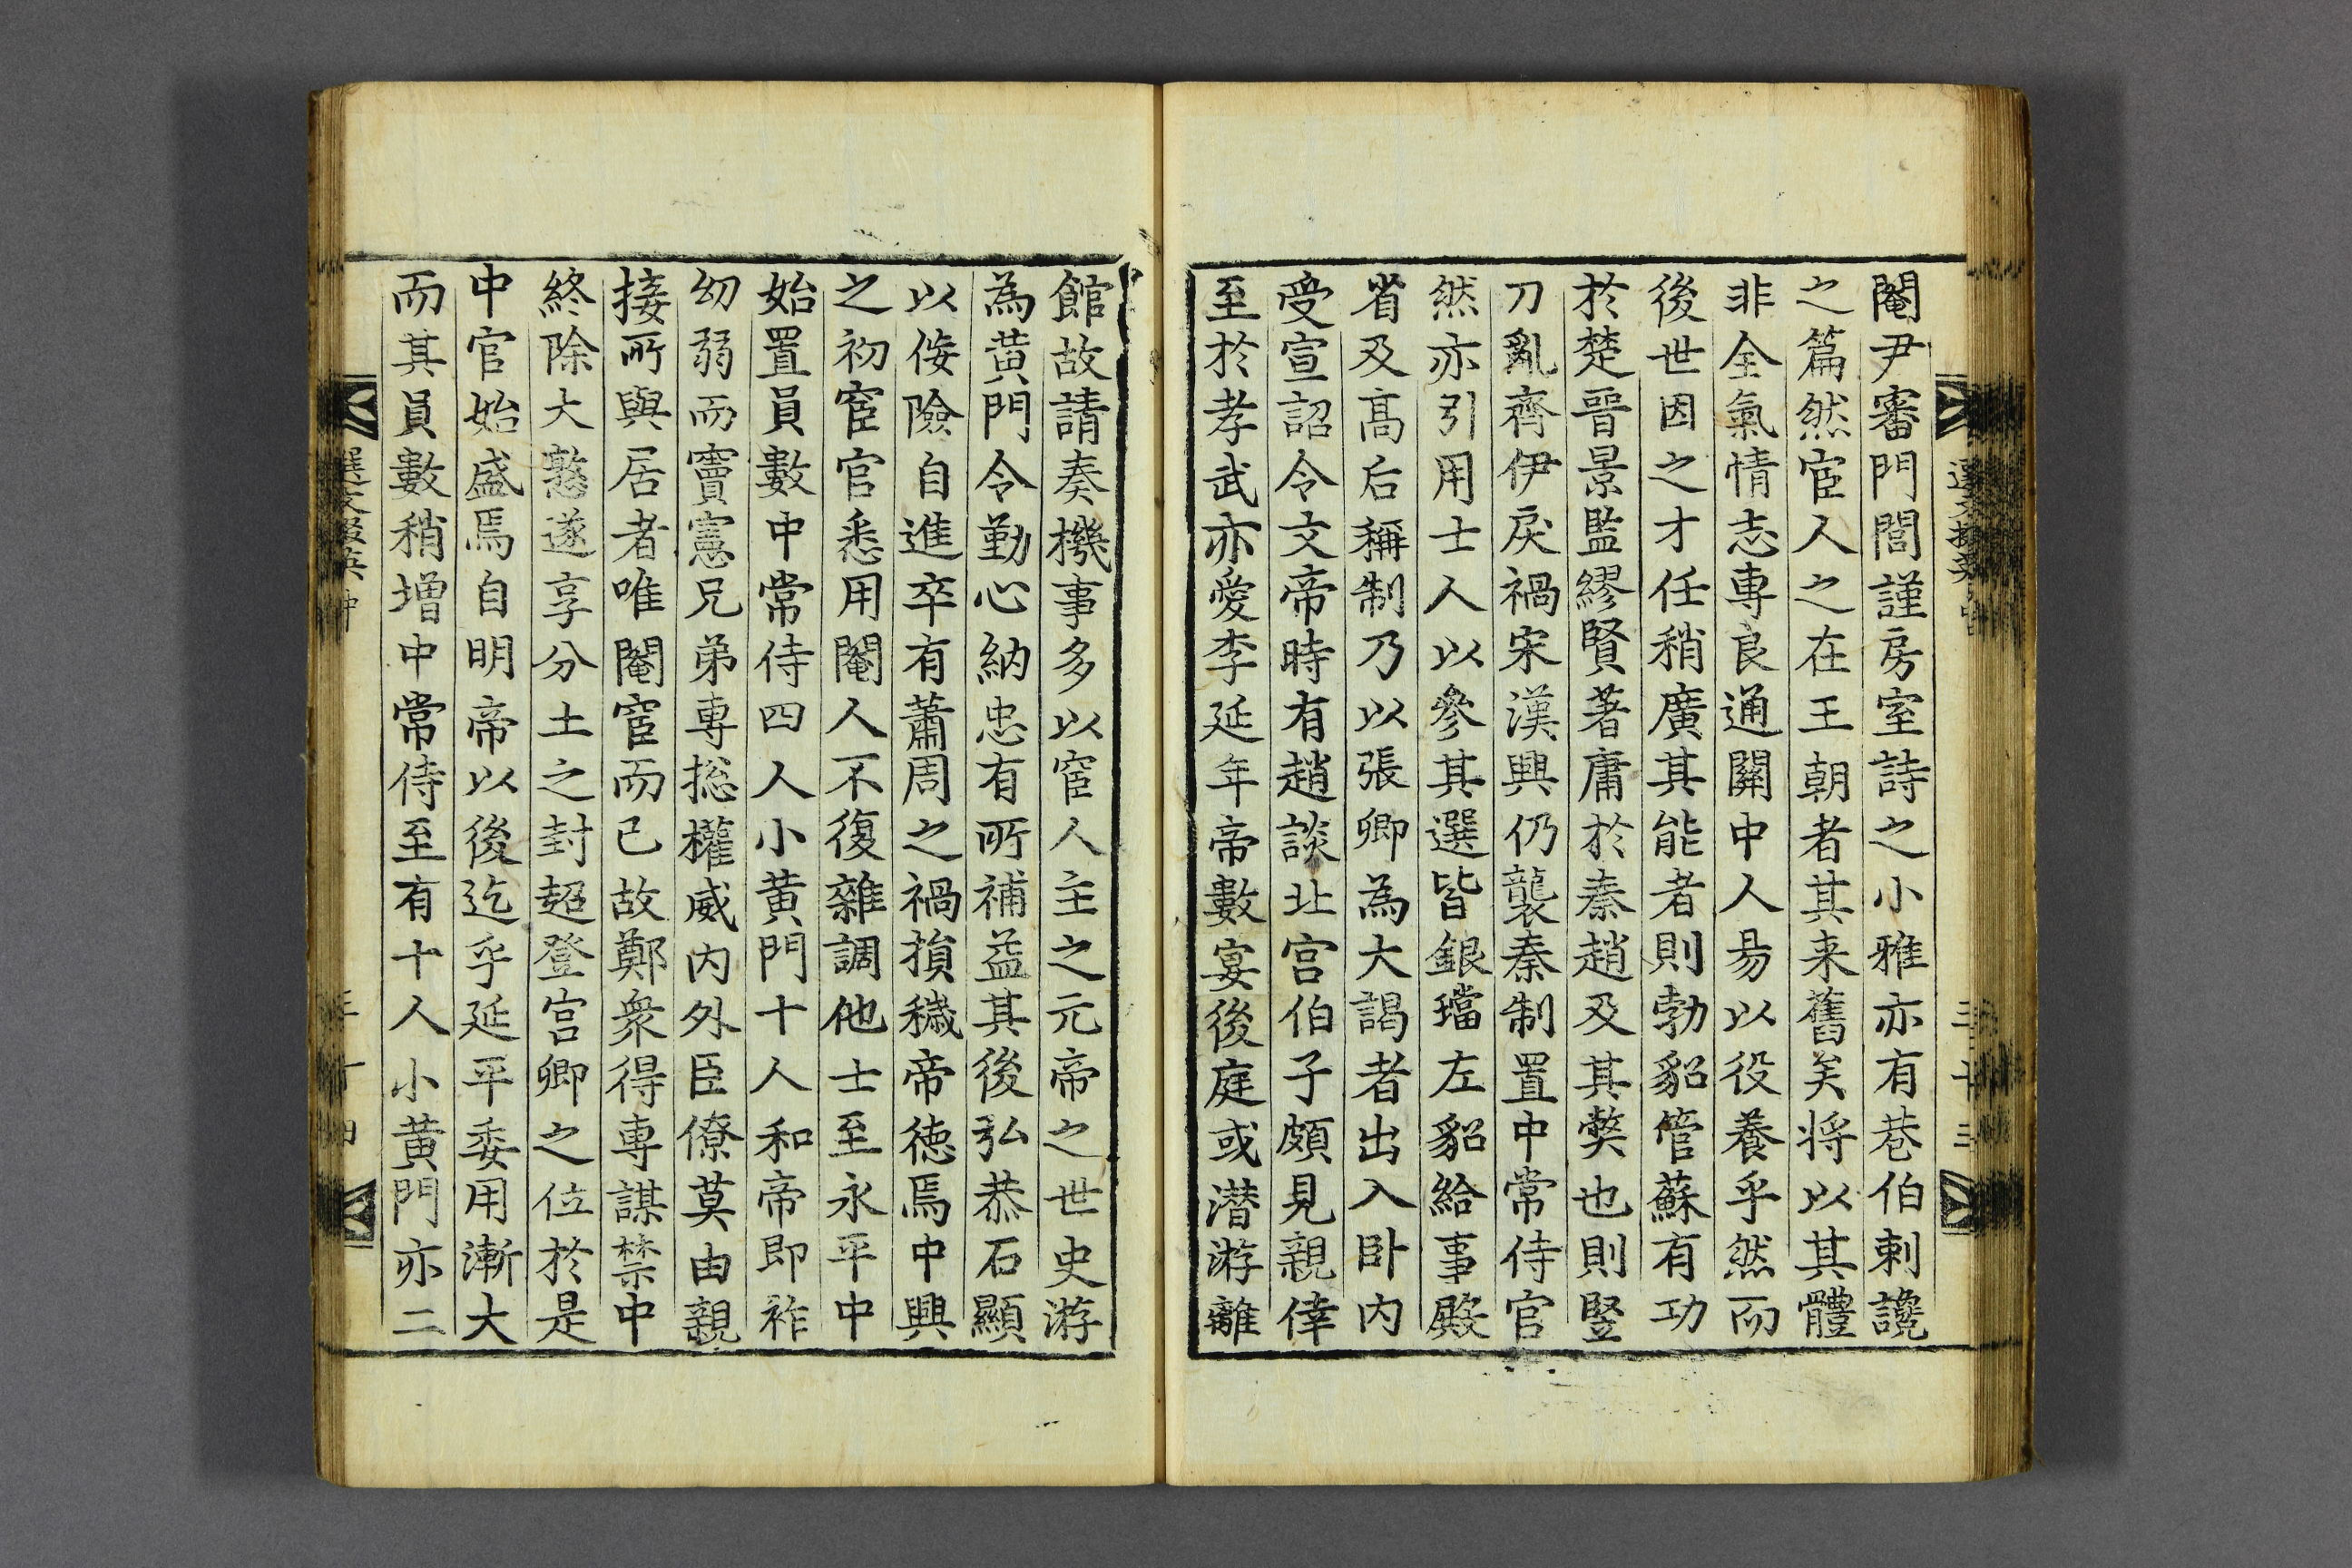 閹尹審門閭謹房室詩之小雅亦有巷伯刺讒
之篇然宦人之在王朝者其来舊矣将以其體
非全氣情志專良通關中人易以役養乎然而
後世因之才任稍廣其能者則勃貂管蘇有功
於楚晉景監繆賢著庸於秦趙及其獘也則竪
刀亂齊伊戾禍宋漢興仍襲秦制置中常侍官
然亦引用士人以參其選皆銀璫左貂給事殿
省及髙后稱制乃以張卿為大謁者出入卧内
受宣詔令文帝時有趙談北宫伯子頗見親倖
至於孝武亦愛李延年帝數宴後庭或潜游離
館故請奏機事多以宦人主之元帝之世史游
為黄門令勤心納忠有所補益其後弘恭石顯
以佞險自進卒有蕭周之禍損穢帝徳焉中興
之初宦官悉用閹人不復雜調他士至永平中
始置員數中常侍四人小黄門十人和帝即祚
幼弱而竇憲兄弟專捴權威内外臣僚莫由親
接所與居者唯閹宦而已故鄭衆得專謀禁中
終除大憝遂享分土之封超登宫卿之位於是
中官始盛焉自明帝以後迄乎延平委用漸大
而其員數稍増中常侍至有十人小黄門亦二